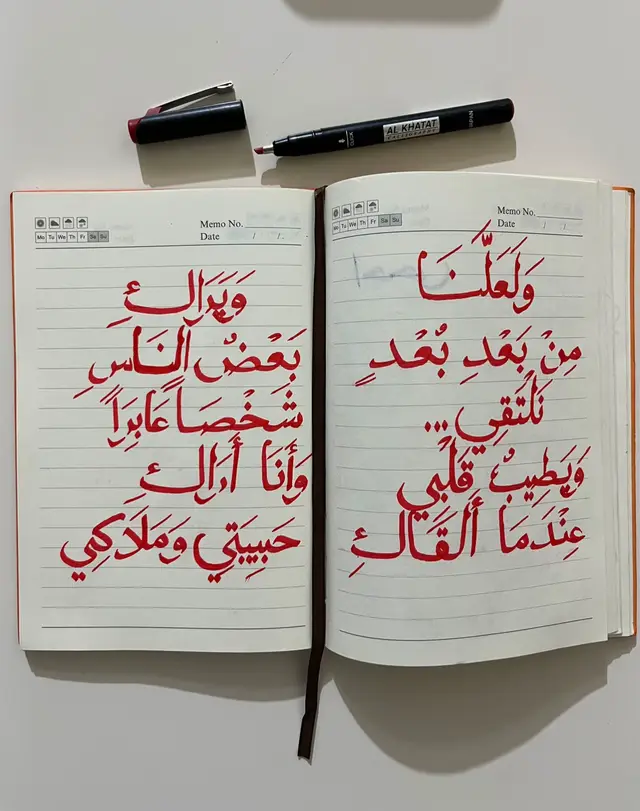 AL KHATAT
CALLIGRAPHY
Memo No.
Date / /
Mo Tu We Th Fr Sa Su
وَلَعَلَّنَا
مِنْ بَعْدِ بُعْدٍ
نَلْتَقِي...
وَيَطِيبُ قَلْبِي
عِنْدَمَا أَلْقَاكِ
Memo No.
Date / /
Mo Tu We Th Fr Sa Su
وَيَرَاكِ
بَعْضُ النَّاسِ
شَخْصَاً عَابِرَاً
وَأَنَا أَرَاكِ
حَبِيبَتِي وَمَلَاكِي